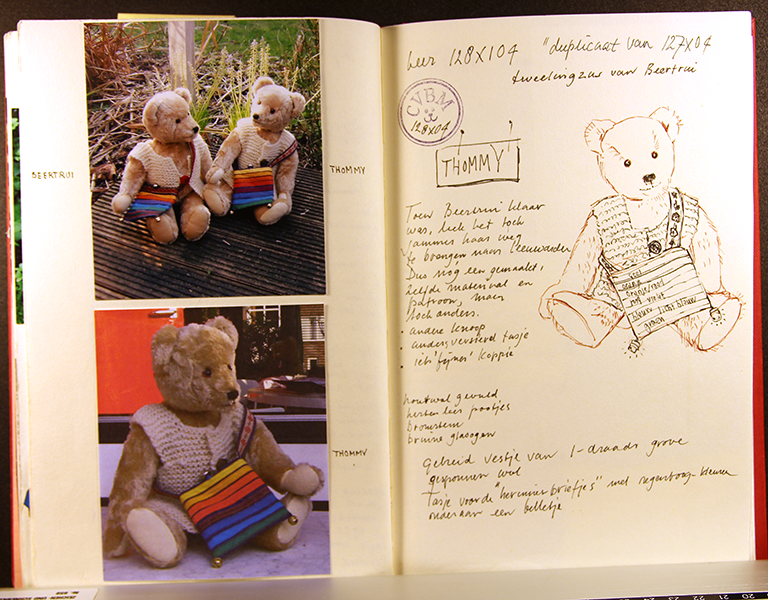 BEERTRUI
THOMMY
THOMMY
beer 128X104 "duplicaat van 127X04
tweelingzus van Beertrui
CVBM
128X04
THOMMY
Toen Beertrui klaar
was, leek het toch
jammer haar weg
te brengen naar Leeuwarden
Dus nog een gemaakt,
zelfde materiaal en
patroon, maar
toch anders.
• andere knoop
• anders versierd tasje
• iets 'fijner' koppie
houtwol gevuld
herten leer pootjes
bromstem
bruine glasogen
Gebreid vestje van 1-draads grove
gesponnen wol
Tasje voor de "herinner briefjes" met regenboog-kleuren
onderaan een belletje
geel
oranje
oranje/rood
rood violet
blauw licht blauw
groen